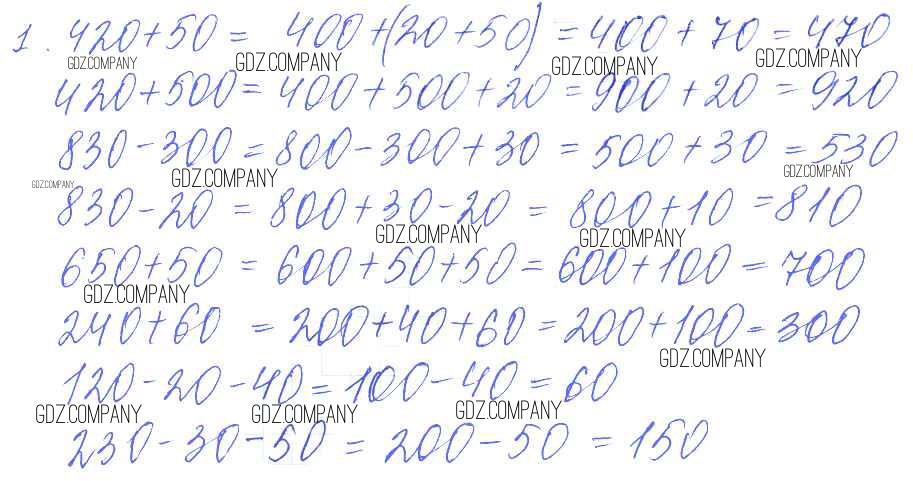 1. 420+50 = 400+(20+50) = 400+70 = 470
GDZ.COMPANY GDZ.COMPANY GDZ.COMPANY GDZ.COMPANY
420+500 = 400+500+20 = 900+20 = 920
830-300 = 800-300+30 = 500+30 = 530
GDZ.COMPANY GDZ.COMPANY GDZ.COMPANY
830-20 = 800+30-20 = 800+10 = 810
GDZ.COMPANY GDZ.COMPANY
650+50 = 600+50+50 = 600+100 = 700
GDZ.COMPANY
240+60 = 200+40+60 = 200+100 = 300
GDZ.COMPANY
120-20-40 = 100-40 = 60
GDZ.COMPANY GDZ.COMPANY GDZ.COMPANY
230-30-50 = 200-50 = 150